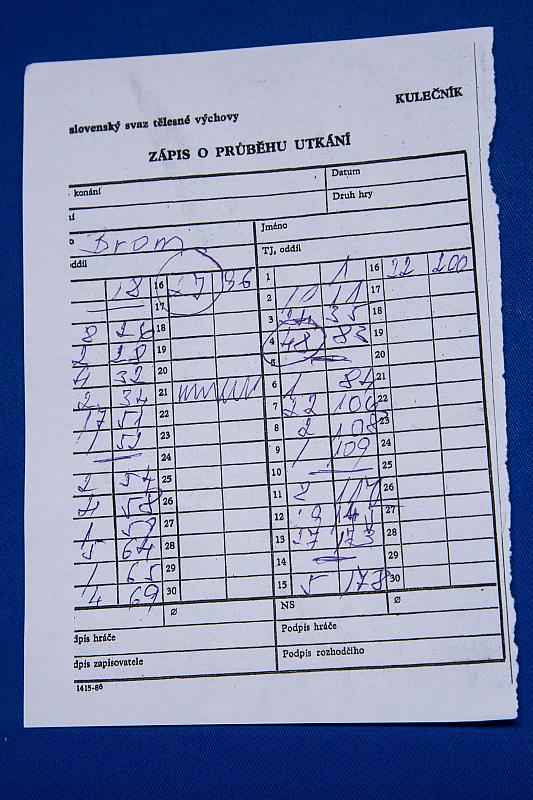 KULEČNÍK
slovenský svaz tělesné výchovy
ZÁPIS O PRŮBĚHU UTKÁNÍ
konání Datum
Druh hry
Brom Jméno
oddíl TJ, oddíl
18 16 27 96 1 1 16 22 200
17 2 10 11 17
8 26 18 3 24 35 18
2 28 19 4 48 83 19
4 32 20 5 20
2 34 21 6 1 84 21
17 51 22 7 22 106 22
1 52 23 8 2 108 23
24 9 1 109 24
2 54 25 10 25
4 58 26 11 2 26
1 59 27 12 27
5 64 28 13 173 28
1 65 29 14 29
4 69 30 15 5 178 30
ø NS ø
dpis hráče Podpis hráče
dpis zapisovatele Podpis rozhodčího
1415-86